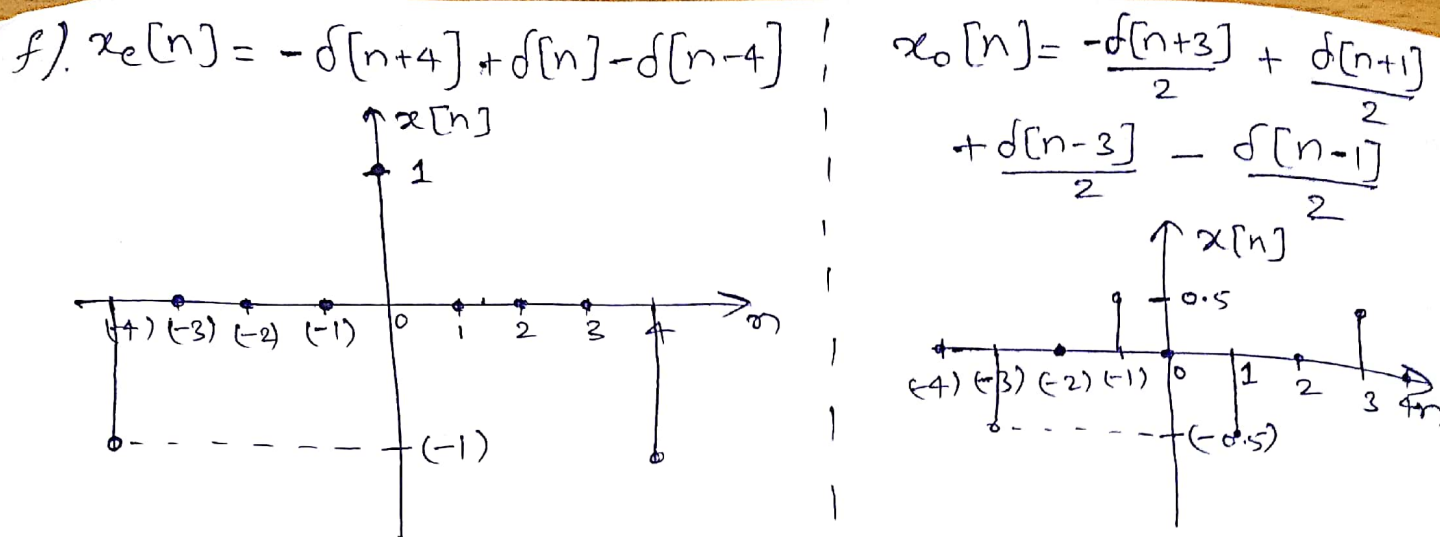 f). xe[n] = -δ[n+4] + δ[n] - δ[n-4]
x[n]
1
(-4) (-3) (-2) (-1) 0 1 2 3 4 n
(-1)
xo[n] = -δ[n+3]/2 + δ[n+1]/2
+ δ[n-3]/2 - δ[n-1]/2
x[n]
0.5
(-4) (-3) (-2) (-1) 0 1 2 3 4 n
(-0.5)